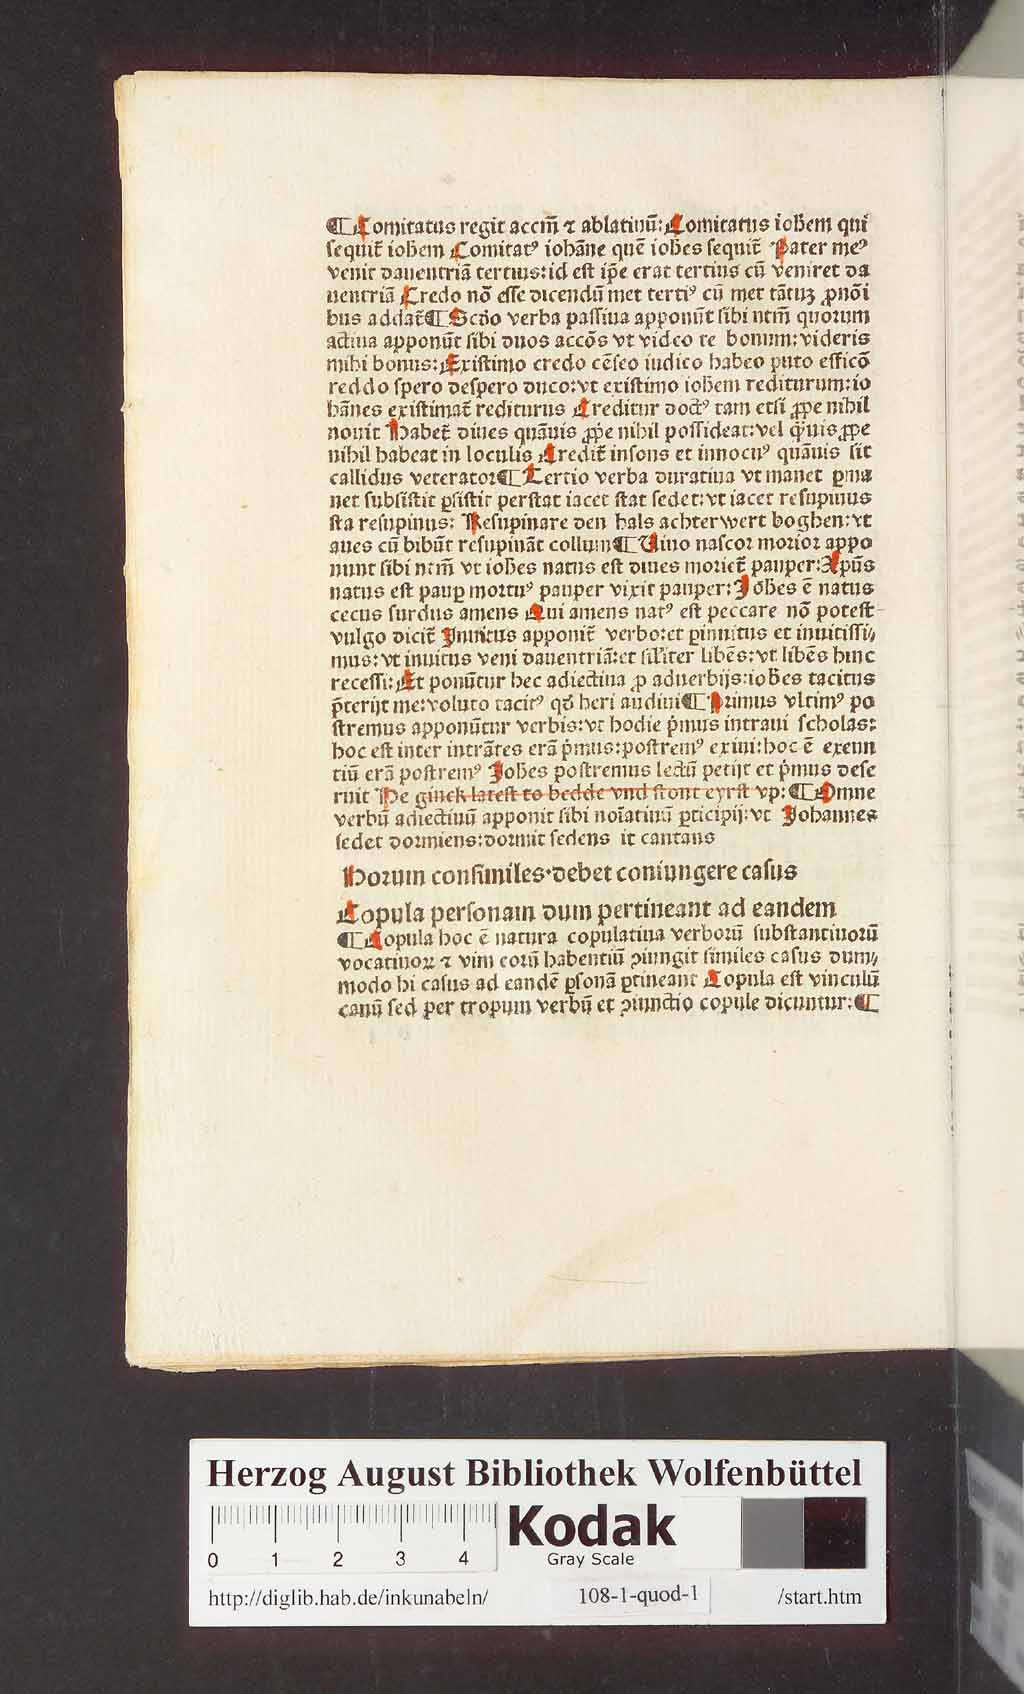 ¶Comitatus regit accm̄ ⁊ ablatiuū: Comitatus ioħem qui
sequit̄ ioħem Comitatꝰ iohāne quē ioħes sequit̄ Pater meꝰ
venit dauentriā tertius: id est ip̄e erat tertius cū veniret da
uentriā Credo nō esse dicendū met tertiꝰ cū met tātuꝫ ꝓnōi
bus addat̄ ¶Scdo verba passiua apponūt sibi ntm̄ quorum
actiua apponūt sibi duos accōs vt video te bonum: videris
mihi bonus: Existimo credo cēseo iudico habeo puto efficō
reddo spero despero duco: vt existimo ioħem rediturum: io
hānes existimat̄ rediturus Creditur doctꝰ tam etsi ꝓpe nihil
nouit Habet̄ diues quāuis ꝓpe nihil possideat: vel q̄uis ꝓpe
nihil habeat in loculis Credit̄ insons et innocuꝰ quāuis sit
callidus veterator ¶Tertio verba duratiua vt manet ꝑma
net subsistit ꝑsistit perstat iacet stat sedet: vt iacet resupinus
sta resupinus: Resupinare den hals achterwert boghen: vt
aues cū bibūt resupināt collum ¶Uiuo nascor morior appo
nunt sibi ntm̄ vt ioħes natus est diues moriet̄ pauper: Xpūs
natus est pauꝑ mortuꝰ pauper vixit pauper: Joħes ē natus
cecus surdus amens Qui amens natꝰ est peccare nō potest
vulgo dicit̄ Inuitus apponit̄ verbo: et ꝑinuitus et inuitissi//
mus: vt inuitus veni dauentriā: et siłiter libēs: vt libēs hinc
recessi: Et ponūtur hec adiectiua ꝓ aduerbijs: ioħes tacitus
p̄terijt me: voluto tacitꝰ qđ heri audiui ¶Primus vltimꝰ po
stremus apponūtur verbis: vt hodie p̄mus intraui scholas:
hoc est inter intrātes erā p̄mus: postremꝰ exiui: hoc ē exeun
tiū erā postremꝰ Joħes postremus lectū petijt et p̄mus dese
ruit He ginck latest to bedde vnd stont eyrst vp: ¶Omne
verbū adiectiuū apponit sibi noīatiuū ꝑticipij: vt Johannes
sedet dormiens: dormit sedens it cantans
Horum consimiles·debet coniungere casus
Copula personam dum pertineant ad eandem
¶Copula hoc ē natura copulatiua verborū substantiuorū
vocatiuoꝝ ⁊ vim eorū habentiū ꝯiungit similes casus dum//
modo hi casus ad eandē ꝑsonā ꝑtineant Copula est vinculū
canū sed per tropum verbū et ꝯiunctio copule dicuntur: ¶
Herzog August Bibliothek Wolfenbüttel
0 1 2 3 4
Kodak
Gray Scale
http://diglib.hab.de/inkunabeln/ 108-1-quod-1 /start.htm